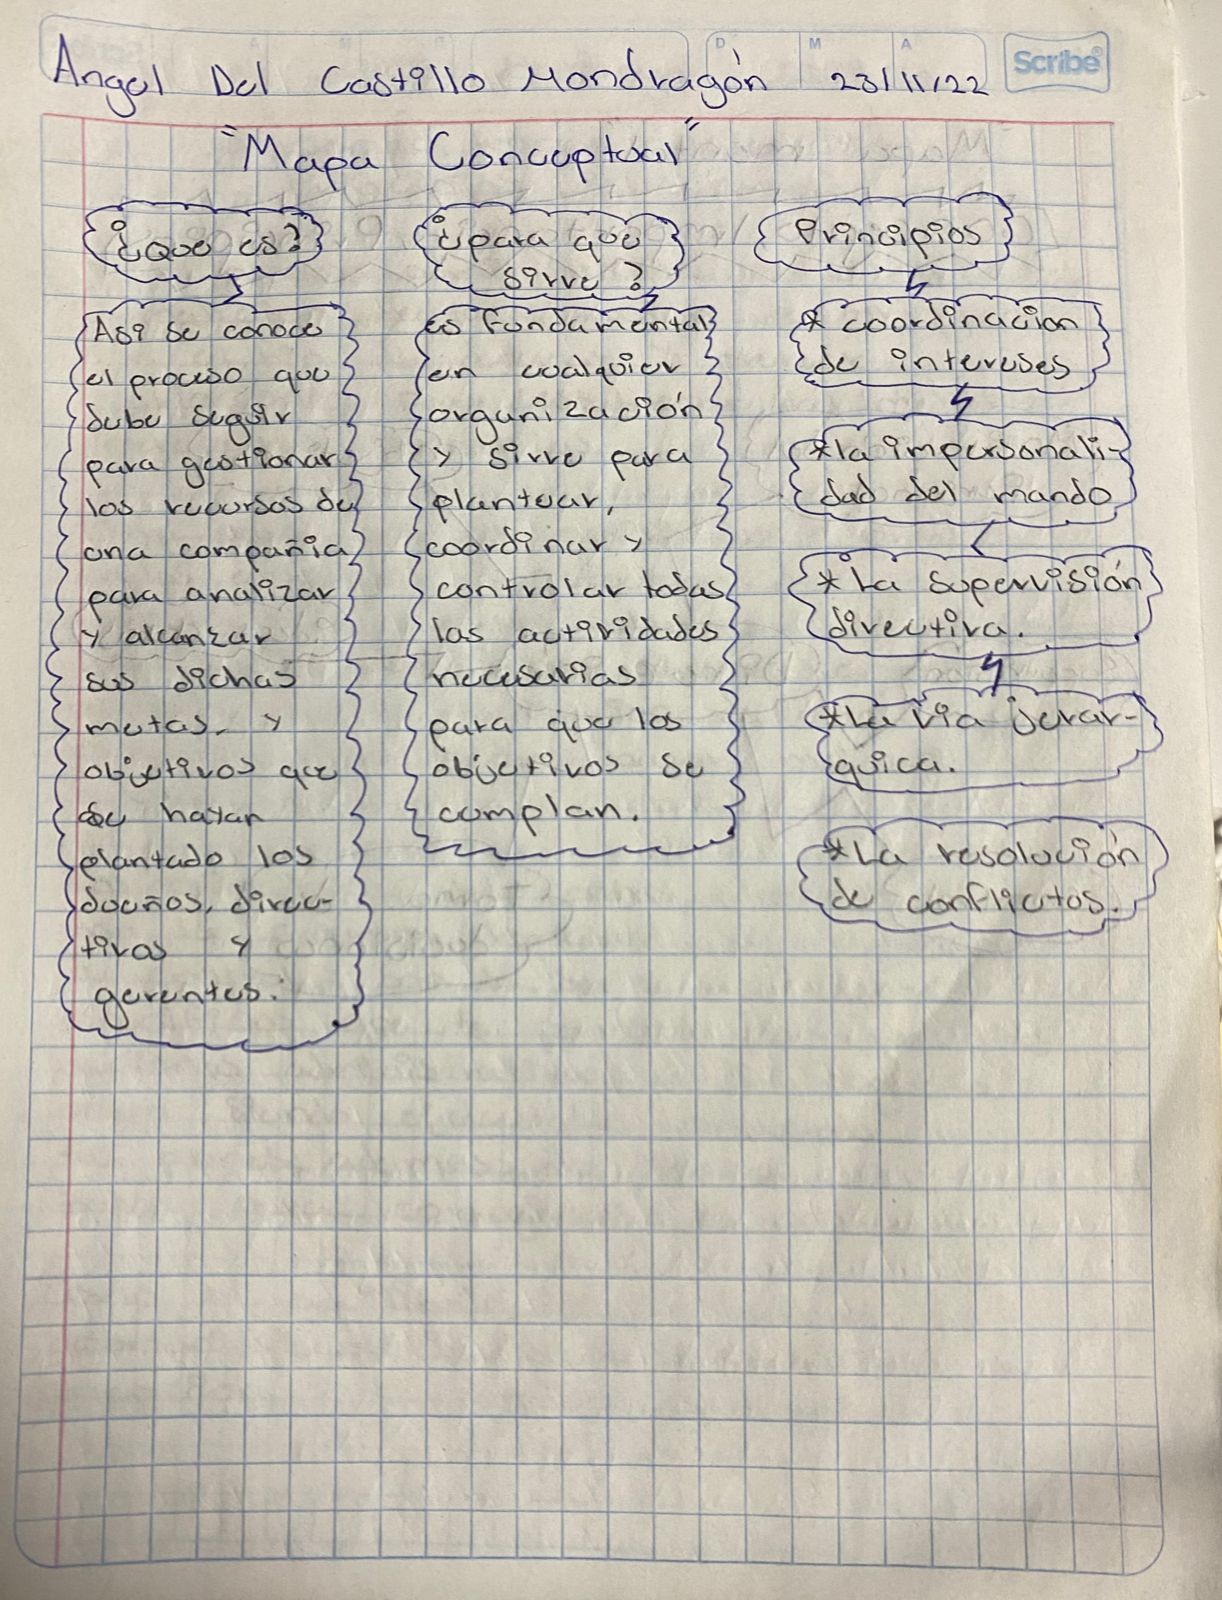 Angel Del Castillo Mondragón 23/11/22
D M A
Scribe®
"Mapa Conceptual"
¿Que es?
Asi se conoce
el proceso que
debe seguir
para gestionar
los recursos de
una compañia
para analizar
y alcanzar
sus dichas
metas, y
objetivos que
se hayan
plantado los
dueños, direc-
tivos y
gerentes.
¿para que
sirve?
es fundamental
en cualquier
organización
y sirve para
plantear,
coordinar y
controlar todas
las actividades
necesarias
para que los
objetivos se
cumplan.
Principios
* coordinacion
de intereses
*la impersonali-
dad del mando
*La supervisión
directiva.
*La via jerar-
quica.
*La resolución
de conflictos.